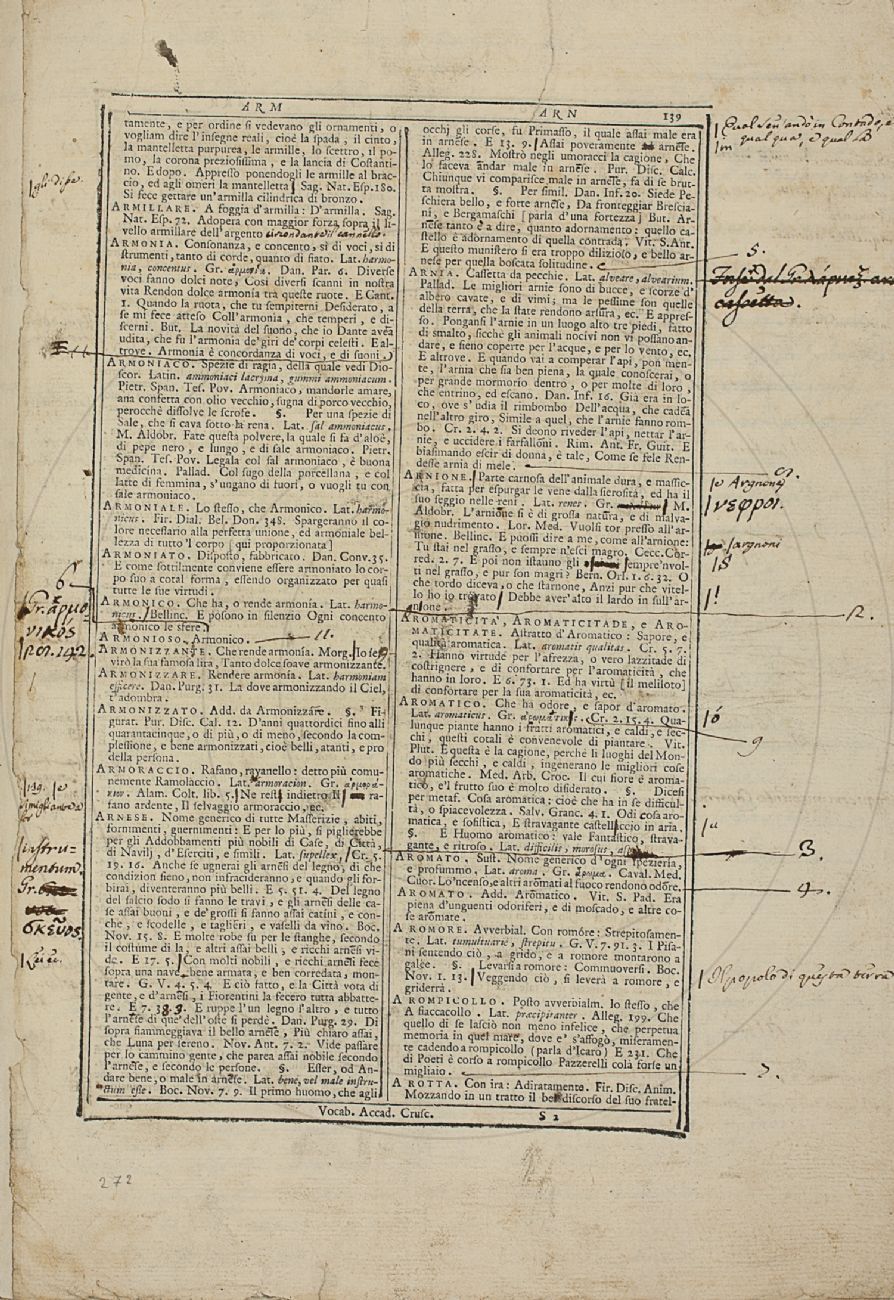 ARM
ARN 139
tamente, e per ordine si vedevano gli ornamenti, o
vogliam dire l'insegne reali, cioè la spada, il cinto,
la mantelletta purpurea, le armille, lo scettro, il po-
mo, la corona preziosissima, e la lancia di Costanti-
no. E dopo. Appresso ponendogli le armille al brac-
cio, ed agli omeri la mantelletta Sag. Nat. Esp. 180.
Si fece gettare un'armilla cilindrica di bronzo.
ARMILLARE. A foggia d'armilla: D'armilla. Sag.
Nat. Esp. 72. Adopera con maggior forza sopra il li-
vello armillare dell'argento
ARMONIA. Consonanza, e concento, sì di voci, sì di
strumenti, tanto di corde, quanto di fiato. Lat. harmo-
nia, concentus. Gr. ἁρμονία. Dan. Par. 6. Diverse
voci fanno dolci note, Così diversi scanni in nostra
vita Rendon dolce armonia tra queste ruote. E Cant.
1. Quando la ruota, che tu sempiterni Desiderato, a
se mi fece atteso Coll'armonia, che temperi, e di-
scerni. But. La novità del suono, che io Dante avea
udita, che fu l'armonia de' giri de' corpi celesti. E al-
trove. Armonia è concordanza di voci, e di suoni.
ARMONIACO. Spezie di ragia, della quale vedi Dio-
scor. Latin. ammoniaci lacryma, gummi ammoniacum.
Pietr. Span. Tes. Pov. Armoniaco, mandorle amare,
ana confetta con olio vecchio, sugna di porco vecchio,
perocchè dissolve le scrofe. §. Per una spezie di
Sale, che si cava sotto la rena. Lat. sal ammoniacus,
M. Aldobr. Fate questa polvere, la quale si fa d'aloè,
di pepe nero, e lungo, e di sale armoniaco. Pietr.
Span. Tes. Pov. Legala col sal armoniaco, è buona
medicina. Pallad. Col sugo della porcellana, e col
latte di femmina, s'ungano di fuori, o vuogli tu con
sale armoniaco.
ARMONIALE. Lo stesso, che Armonico. Lat. harmo-
nicus. Fir. Dial. Bel. Don. 348. Spargeranno il co-
lore necessario alla perfetta unione, ed armoniale bel-
lezza di tutto 'l corpo [qui proporzionata]
ARMONIATO. Disposto, fabbricato. Dan. Conv. 35.
E come sottilmente conviene essere armoniato lo cor-
po suo a cotal forma, essendo organizzato per quasi
tutte le sue virtudi.
ARMONICO. Che ha, o rende armonia. Lat. harmo-
nicus. Bellinc. E posono in silenzio Ogni concento
armonico le sfere
ARMONIOSO. Armonico. 11.
ARMONIZZANTE. Che rende armonia. Morg. Io fe-
virò la sua famosa lira, Tanto dolce soave armonizzante.
ARMONIZZARE. Rendere armonia. Lat. harmoniam
efficere. Dan. Purg. 31. La dove armonizzando il Ciel,
t'adombra.
ARMONIZZATO. Add. da Armonizzare. §. Fi-
gurat. Pur. Disc. Cal. 12. D'anni quattordici sino alli
quarantacinque, o di più, o di meno, secondo la com-
plessione, e bene armonizzati, cioè belli, atanti, e pro
della persona.
ARMORACCIO. Rafano, ravanello: detto più comu-
nemente Ramolaccio. Lat. armoracion. Gr.
Alam. Colt. lib. 5. Ne resti indietro Il ra-
fano ardente, Il selvaggio armoraccio, ec.
ARNESE. Nome generico di tutte Masserizie, abiti,
fornimenti, guernimenti: E per lo più, si piglierebbe
per gli Addobbamenti più nobili di Case, di Città,
di Navilj, d'Eserciti, e simili. Lat. supellex, Cr. 5.
19. 16. Anche se ugnerai gli arnesi del legno, di che
condizion sieno, non infracideranno, e quando gli for-
birai, diventeranno più belli. E 5. 51. 4. Del legno
del salcio sodo si fanno le travi, e gli arnesi delle ca-
se assai buoni, e de' grossi si fanno catini, e con-
che, e scodelle, e taglieri, e vaselli da vino. Boc.
Nov. 15. 8. E molte robe su per le stanghe, secondo
il costume di là, e altri assai belli, e ricchi arnesi vi-
de. E 17. 5. Con molti nobili, e ricchi arnesi fece
sopra una nave bene armata, e ben corredata, mon-
tare. G. V. 4. 5. 4. E ciò fatto, e la Città vota di
gente, e d'arnesi, i Fiorentini la fecero tutta abbatte-
re. E 7. 38. 3. E ruppe l'un legno l'altro, e tutto
l'arnese di que' dell'oste si perdè. Dan. Purg. 29. Di
sopra fiammeggiava il bello arnese, Più chiaro assai,
che Luna per sereno. Nov. Ant. 7. 2. Vide passare
per lo cammino gente, che parea assai nobile secondo
l'arnese, e secondo le persone. §. Esser, od An-
dare bene, o male in arnese. Lat. bene, vel male instru-
ctum esse. Boc. Nov. 7. 9. Il primo huomo, che agli
occhj gli corse, fu Primasso, il quale assai male era
in arnese. E 13. 9. Assai poveramente arnese.
Alleg. 228. Mostrò negli umoracci la cagione, Che
lo faceva andar male in arnese. Pur. Disc. Calc.
Chiunque vi comparisce male in arnese, fa di se brut-
ta mostra. §. Per simil. Dan. Inf. 20. Siede Pe-
schiera bello, e forte arnese, Da fronteggiar Brescia-
ni, e Bergamaschi [parla d'una fortezza] But. Ar-
nese tanto è a dire, quanto adornamento: quello ca-
stello è adornamento di quella contrada. Vit. S. Ant.
E questo munistero si era troppo dilizioso, e bello ar-
nese per quella boscata solitudine.
ARNIA. Cassetta da pecchie. Lat. alveare, alvearium.
Pallad. Le migliori arnie sono di bucce, e scorze d'
albero cavate, e di vimi; ma le pessime son quelle
della terra, che la state rendono arsura, ec. E appres-
so. Pongansi l'arnie in un luogo alto tre piedi, fatto
di smalto, sicchè gli animali nocivi non vi possano an-
dare, e sieno coperte per l'acque, e per lo vento, ec.
E altrove. E quando vai a comperar l'api, pon men-
te, l'arnia che sia ben piena, la quale conoscerai, o
per grande mormorio dentro, o per molte di loro,
che entrino, ed escano. Dan. Inf. 16. Già era in lo-
co, ove s'udia il rimbombo Dell'acqua, che cadea
nell'altro giro, Simile a quel, che l'arnie fanno rom-
bo. Cr. 2. 4. 2. Si deono riveder l'api, nettar l'ar-
nie, e uccidere i farfalloni. Rim. Ant. Fr. Guit. E
biasimando escir di donna, è tale, Come se fele Ren-
desse arnia di mele.
ARNIONE. Parte carnosa dell'animale dura, e massic-
cia, fatta per espurgar le vene dalla sierosità, ed ha il
suo seggio nelle reni. Lat. renes. Gr. M.
Aldobr. L'arnione si è di grossa natura, e di malva-
gio nudrimento. Lor. Med. Vuolsi tor presso all'ar-
nione. Bellinc. E puossi dire a me, come all'arnione:
Tu stai nel grasso, e sempre n'esci magro. Cecc. Cor-
red. 2. 7. E poi non issauno gli sempr'nvol-
ti nel grasso, e pur son magri? Bern. Orl. 1. 6. 32. O
che tordo diceva, o che starnone, Anzi pur che vitel-
lo ho io trovato Debbe aver'alto il lardo in sull'ar-
nione.
AROMATICITÀ, AROMATICITADE, e ARO-
MATICITATE. Astratto d'Aromatico: Sapore, e
qualità aromatica. Lat. aromatis qualitas. Cr. 5. 7.
2. Hanno virtude per l'afrezza, o vero lazzitade di
costrignere, e di confortare per l'aromaticità, che
hanno in loro. E 6. 73. 1. Ed ha virtù [il meliloto]
di confortare per la sua aromaticità, ec.
AROMATICO. Che ha odore, e sapor d'aromato.
Lat. aromaticus. Gr. ἀρωματικός. Cr. 2. 15. 4. Qua-
lunque piante hanno i frutti aromatici, e caldi, e sec-
chi, questi cotali è convenevole di piantare. Vit.
Plut. E questa è la cagione, perchè li luoghi del Mon-
do più secchi, e caldi, ingenerano le migliori cose
aromatiche. Med. Arb. Croc. Il cui fiore è aroma-
tico, e'l frutto suo è molto disiderato. §. Dicesi
per metaf. Cosa aromatica: cioè che ha in se difficul-
tà, o spiacevolezza. Salv. Granc. 4. 1. Odi cosa aro-
matica, e sofistica, E stravagante castelluccio in aria.
§. E Huomo aromatico: vale Fantastico, strava-
gante, e ritroso. Lat. difficilis, morosus,
AROMATO. Sust. Nome generico d'ogni spezieria,
e profummo. Lat. aroma. Gr. ἄρωμα. Caval. Med.
Cuor. Lo'ncenso, e altri aromati al fuoco rendono odore.
AROMATO. Add. Aromatico. Vit. S. Pad. Era
piena d'unguenti odoriferi, e di moscado, e altre co-
se aromate.
A ROMORE. Avverbial. Con romóre: Strepitosamen-
te. Lat. tumultuariè, strepitu. G. V. 7. 91. 3. I Pisa-
ni sentendo ciò, a grido, e a romore montarono a
galèe. §. Levarsi a romore: Commuoversi. Boc.
Nov. 1. 13. Veggendo ciò, si leverà a romore, e
griderrà.
A ROMPICOLLO. Posto avverbialm. lo stesso, che
A fiaccacollo. Lat. præcipitanter. Alleg. 199. Che
quello di se lasciò non meno infelice, che perpetua
memoria in quel mare, dove e' s'affogò, miseramen-
te cadendo a rompicollo (parla d'Icaro) E 231. Che
di Poeti è corso a rompicollo Pazzerelli colà forse un
migliaio.
A ROTTA. Con ira: Adiratamente. Fir. Disc. Anim.
Mozzando in un tratto il bel discorso del suo fratel-
Vocab. Accad. Crusc. S 2
6
por. 142.
instru-
mentum.
Gr.
σκεῦος.
5.
cassetta.
se Argnone
νεφροί.
argnoni
12.
ó
9
3.
4.
Il popolo di questa terra
272